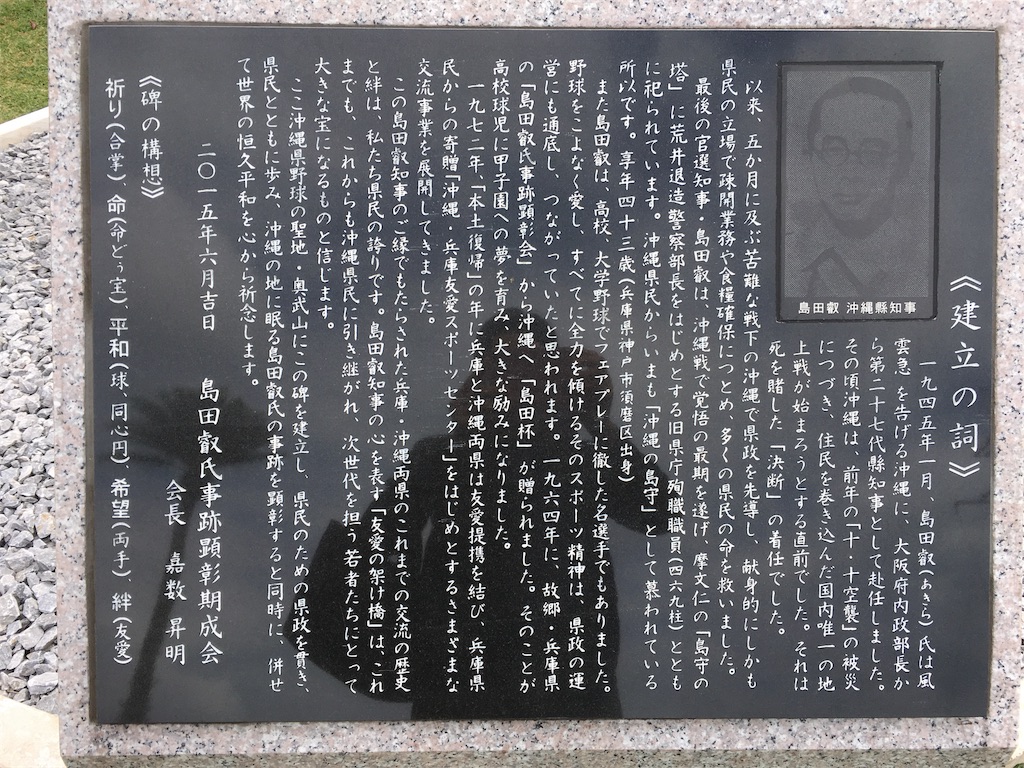 《建立の詞》
島田叡 沖縄縣知事
一九四五年一月、島田叡(あきら)氏は風
雲急を告げる沖縄に、大阪府内政部長か
ら第二十七代縣知事として赴任しました。
その頃沖縄は、前年の「十・十空襲」の被災
につづき、住民を巻き込んだ国内唯一の地
上戦が始まろうとする直前でした。それは
死を賭した「決断」の着任でした。
以来、五か月に及ぶ苦難な戦下の沖縄で県政を先導し、献身的にしかも
県民の立場で疎開業務や食糧確保につとめ、多くの県民の命を救いました。
最後の官選知事・島田叡は、沖縄戦で覚悟の最期を遂げ、摩文仁の「島守の
塔」に荒井退造警察部長をはじめとする旧県庁殉職職員(四六九柱)ととも
に祀られています。沖縄県民からいまも「沖縄の島守」として慕われている
所以です。享年四十三歳(兵庫県神戸市須磨区出身)
また島田叡は、高校、大学野球でフェアプレーに徹した名選手でもありました。
野球をこよなく愛し、すべてに全力を傾けるそのスポーツ精神は、県政の運
営にも通底し、つながっていたと思われます。一九六四年に、故郷・兵庫県
の「島田叡氏事跡顕彰会」から沖縄へ「島田杯」が贈られました。そのことが
高校球児に甲子園への夢を育み、大きな励みになりました。
一九七二年、「本土復帰」の年に兵庫・沖縄両県は友愛提携を結び、兵庫県
民からの寄贈「沖縄・兵庫友愛スポーツセンター」をはじめとするさまざまな
交流事業を展開してきました。
この島田叡知事のご縁でもたらされた兵庫・沖縄両県のこれまでの交流の歴史
と絆は、私たち県民の誇りです。島田叡知事の心を表す「友愛の架け橋」は、これ
までも、これからも沖縄県民に引き継がれ、次世代を担う若者たちにとって
大きな宝になるものと信じます。
ここ沖縄県野球の聖地・奥武山にこの碑を建立し、県民のための県政を貫き、
県民とともに歩み、沖縄の地に眠る島田叡氏の事跡を顕彰すると同時に、併せ
て世界の恒久平和を心から祈念します。
二〇一五年六月吉日 島田叡氏事跡顕彰期成会
会長 嘉数 昇明
《碑の構想》
祈り(合掌)、命(命どぅ宝)、平和(球、同心円)、希望(両手)、絆(友愛)